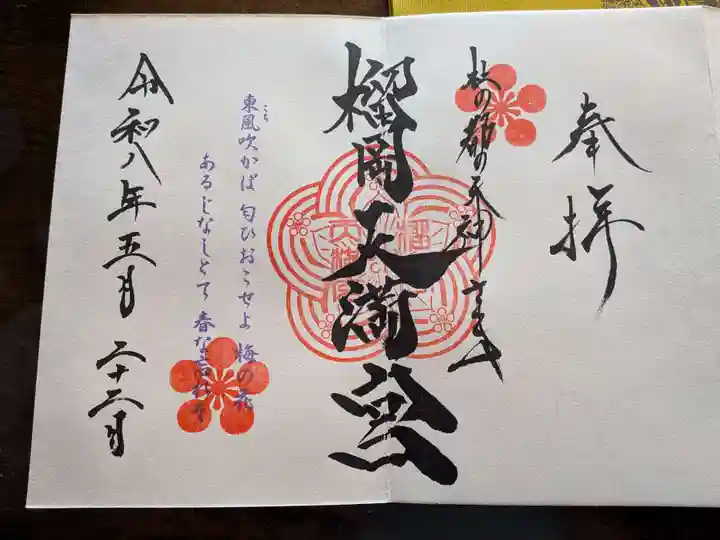 奉拝
杜の都の天神さま
榴岡天満宮
東風吹かば 匂ひおこせよ 梅の花
こち
あるじなしとて 春な忘れそ
令和八年五月二十三日